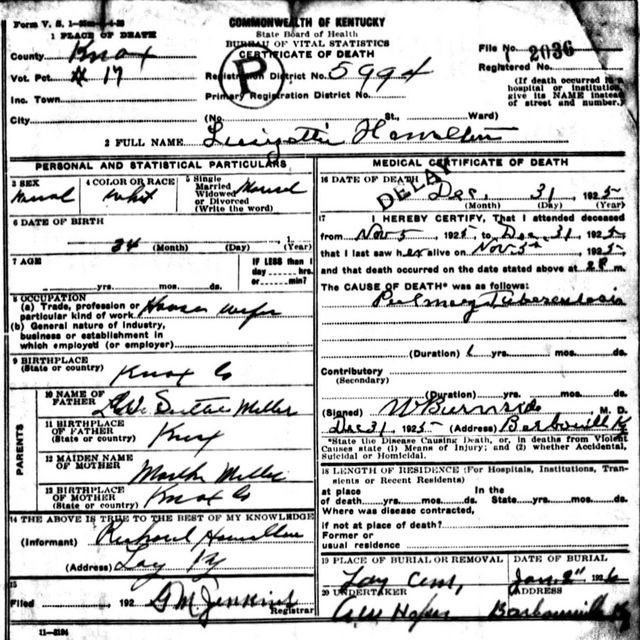 Form V. S. 1-
COMMONWEALTH OF KENTUCKY
State Board of Health
BUREAU OF VITAL STATISTICS
CERTIFICATE OF DEATH
1 PLACE OF DEATH
County Knox
Vot. Pct. # 17
Inc. Town
City
P
Registration District No. 5994
Primary Registration District No.
File No. 2036
Registered No.
(If death occurred in a hospital or institution, give its NAME instead of street and number.)
(No. St., Ward)
2 FULL NAME
PERSONAL AND STATISTICAL PARTICULARS
3 SEX
4 COLOR OR RACE
White
5 Single
Married
Widowed
or Divorced
(Write the word)
6 DATE OF BIRTH
24
(Month) (Day) (Year)
7 AGE
yrs. mos. ds.
IF LESS than 1
day hrs.
or min.?
8 OCCUPATION
(a) Trade, profession or
particular kind of work House wife
(b) General nature of industry,
business or establishment in
which employed (or employer)
9 BIRTHPLACE
(State or country)
Knox Co
PARENTS
10 NAME OF
FATHER
Miller
11 BIRTHPLACE
OF FATHER
(State or country)
Knox
12 MAIDEN NAME
OF MOTHER
Martha Miller
13 BIRTHPLACE
OF MOTHER
(State or country)
Knox Co
14 THE ABOVE IS TRUE TO THE BEST OF MY KNOWLEDGE
(Informant)
(Address) Lay Ky
15
Filed 192
G M Jenkins
Registrar
11-3184
MEDICAL CERTIFICATE OF DEATH
16 DATE OF DEATH
DELAY
Dec. 31 1925
(Month) (Day) (Year)
17 I HEREBY CERTIFY, That I attended deceased
from Nov 5 1925, to Dec. 31 1925,
that I last saw her alive on Nov 5th 1925,
and that death occurred on the date stated above at m.
THE CAUSE OF DEATH* was as follows:
Pulmary Tuberculosis
(Duration) yrs. mos. ds.
Contributory
(Secondary)
(Duration) yrs. mos. ds.
(Signed) W Burnside M. D.
Dec 31 1925 (Address) Barbourvill K
*State the Disease Causing Death, or, in deaths from Violent
Causes state (1) Means of Injury; and (2) whether Accidental,
Suicidal or Homicidal.
18 LENGTH OF RESIDENCE (For Hospitals, Institutions, Tran-
sients or Recent Residents)
at place In the
of death yrs. mos. ds. State yrs. mos. ds.
Where was disease contracted,
if not at place of death?
Former or
usual residence
19 PLACE OF BURIAL OR REMOVAL
DATE OF BURIAL
Lay Cem, Jan 2" 1926
20 UNDERTAKER
ADDRESS
Barbourville Ky